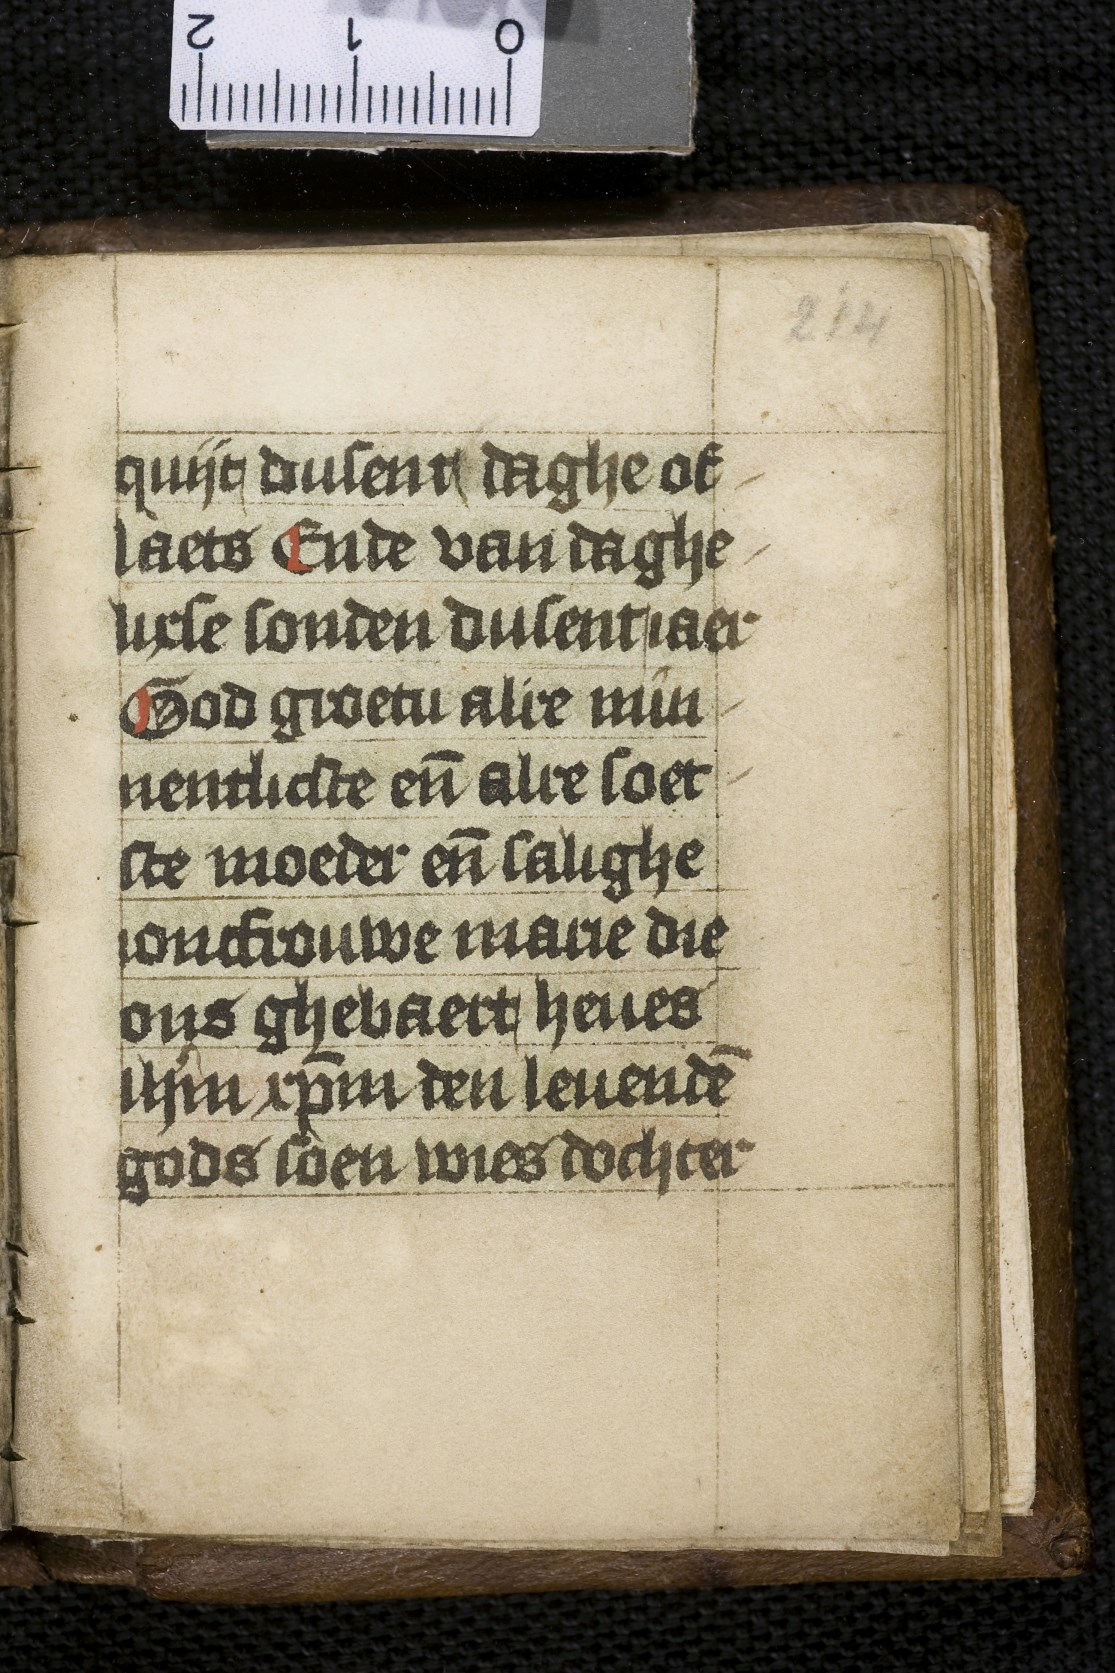 2 1 0
214
quijt dusent daghe of
laets Ende van daghe
lixse sonden dusent iaer
God groetu alre min
nentlicste en̄ alre soet
ste moeder en̄ salighe
ioncfrouwe marie die
ons ghebaert heues
ihm xp̄m den leuendē
gods soen wies dochter